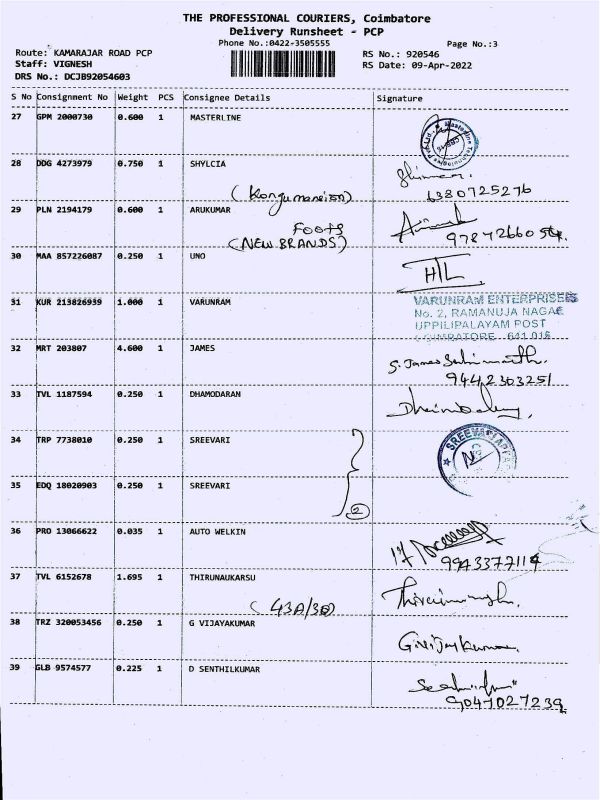 THE PROFESSIONAL COURIERS, Coimbatore
Delivery Runsheet - PCP
Phone No.:0422-3505555
Page No.:3
Route: KAMARAJAR ROAD PCP
RS No.: 920546
Staff: VIGNESH
RS Date: 09-Apr-2022
DRS No.: DCJB92054603
S No Consignment No Weight PCS Consignee Details Signature
27 GPM 2000730 0.600 1 MASTERLINE
28 DDG 4273979 0.750 1 SHYLCIA
(Kongumansion) 6380725276
29 PLN 2194179 0.600 1 ARUKUMAR
FOOTS
(NEW BRANDS)
30 MAA 857226087 0.250 1 UNO
31 KUR 213826939 1.000 1 VARUNRAM
VARUNRAM ENTERPRISES
No. 2, RAMANUJA NAGAR
UPPILIPALAYAM POST
COIMBATORE - 641 015
32 MRT 203807 4.600 1 JAMES
9442303251
33 TVL 1187594 0.250 1 DHAMODARAN
34 TRP 7738010 0.250 1 SREEVARI
35 EDQ 18020903 0.250 1 SREEVARI
2
36 PRO 13066622 0.035 1 AUTO WELKIN
9943377114
37 TVL 6152678 1.695 1 THIRUNAUKARSU
38 TRZ 320053456 0.250 1 G VIJAYAKUMAR
G.VijayKumar
39 GLB 9574577 0.225 1 D SENTHILKUMAR
9047027239